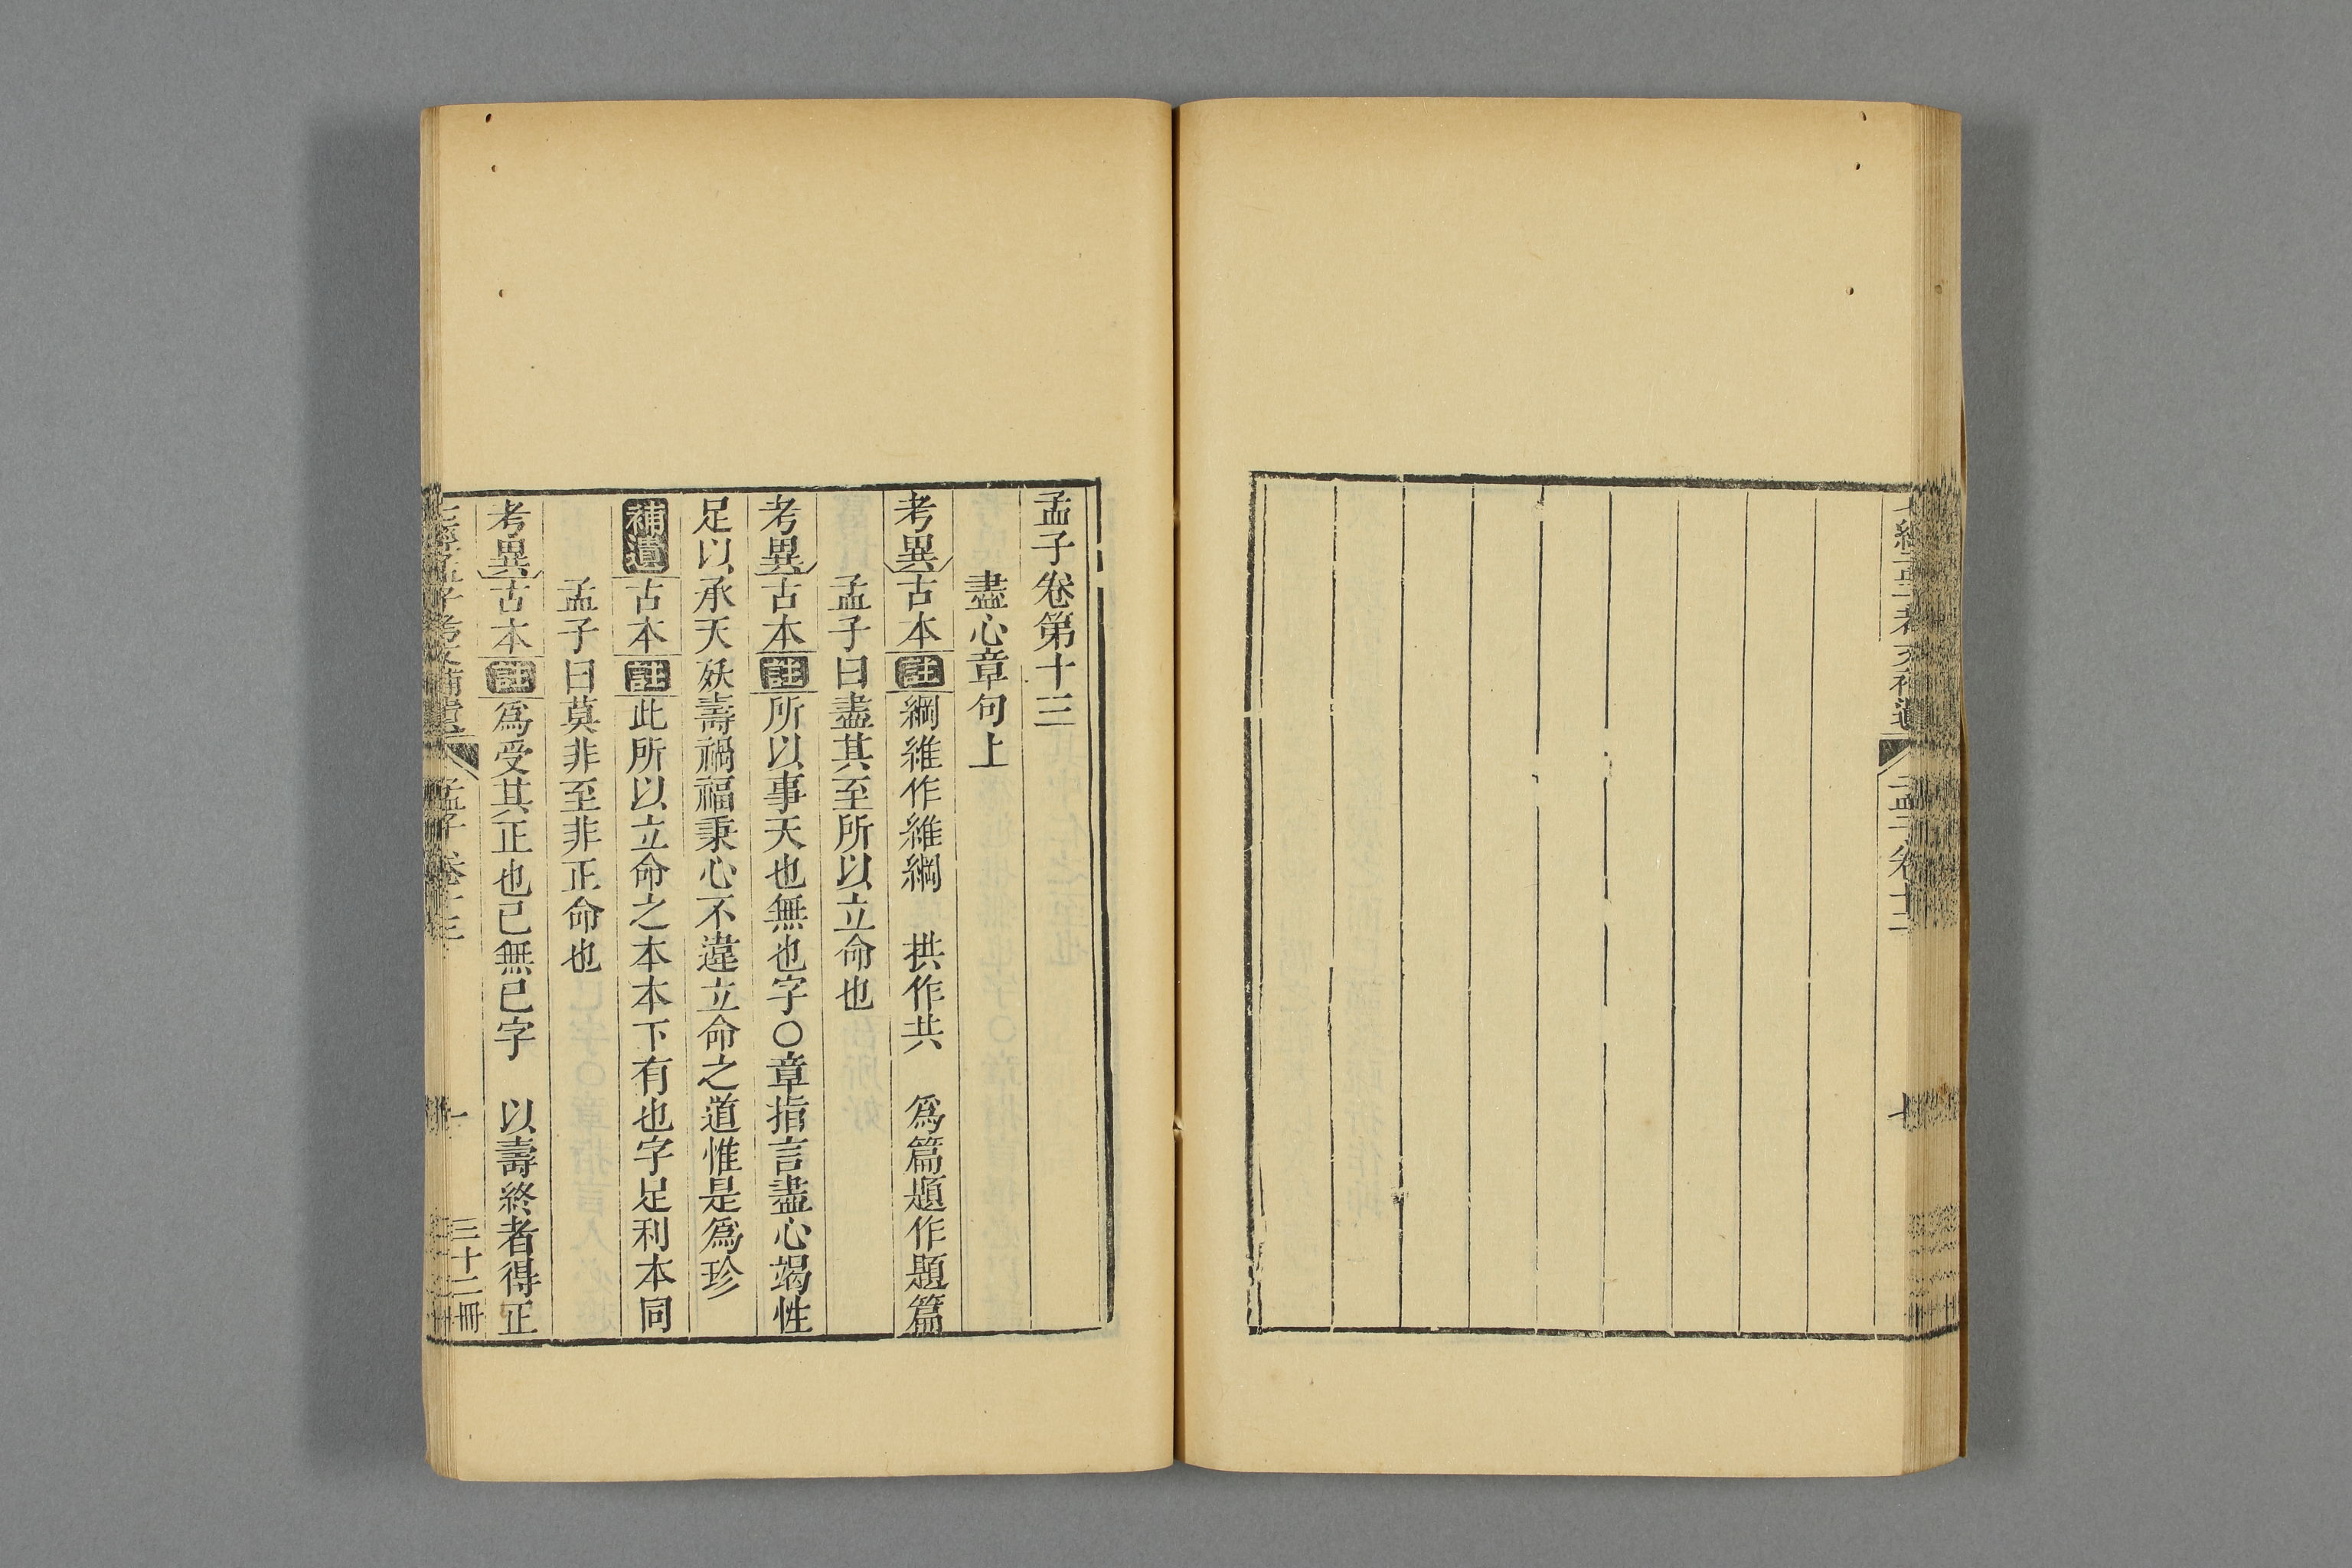 孟子卷第十三
盡心章句上
考異古本註綱維作維綱　拱作共　爲篇題作題篇
孟子曰盡其至所以立命也
考異古本註所以事天也無也字○章指言盡心竭性
足以承天殀壽禍福秉心不違立命之道惟是爲珍
補遺古本註此所以立命之本本下有也字足利本同
孟子曰莫非至非正命也
考異古本註爲受其正也已無已字　以壽終者得正
孟子卷十三
一
三十二冊